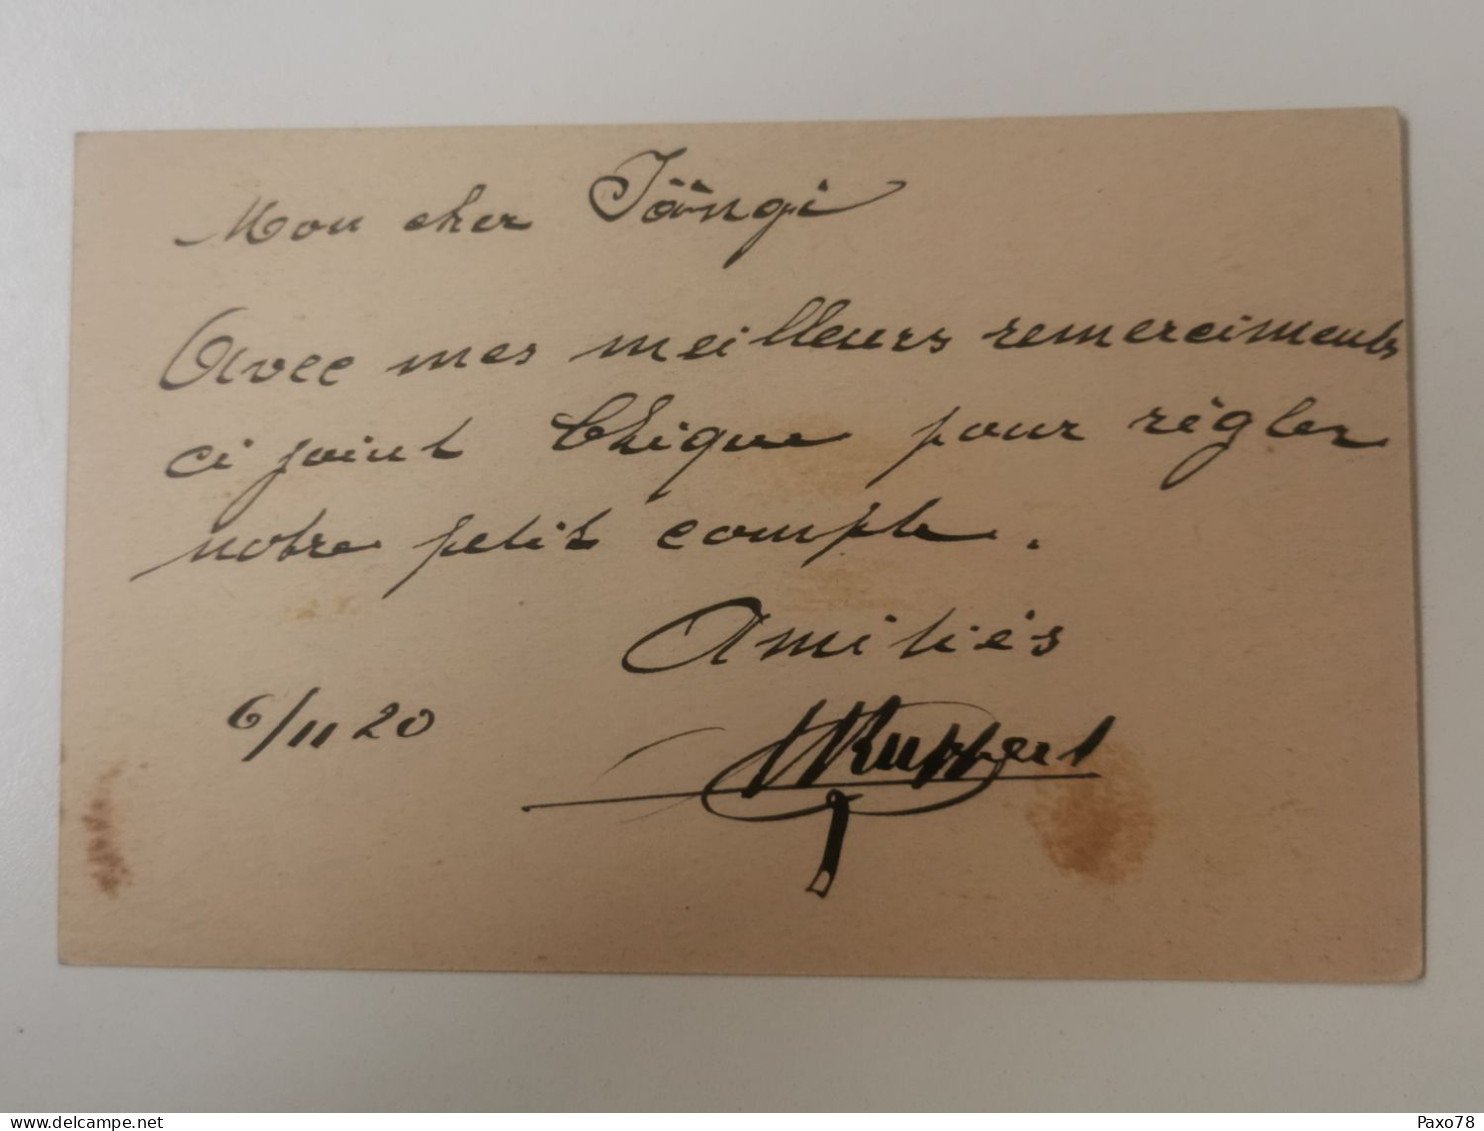 Mon cher Jängi
Avec mes meilleurs remerciments
ci joint Chèque pour règler
notre petit compte.
Amitiés
6/11 20
Ruppert
www.delcampe.net
Paxo78